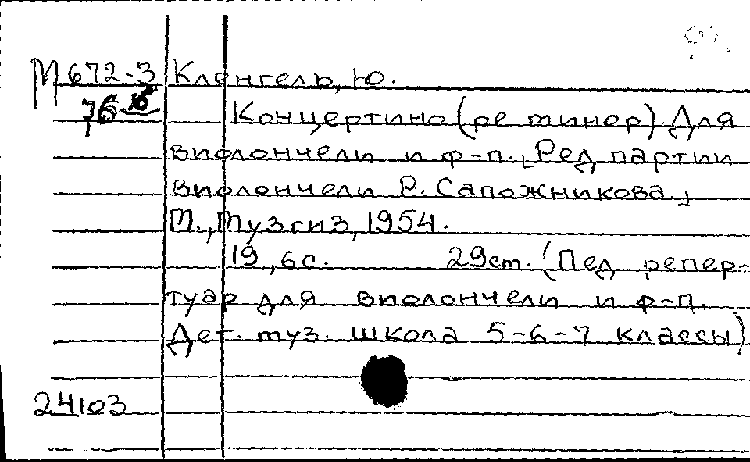 М672-3 Кленгель, Ю.
Концертино (ре минор) Для
виолончели и ф-п. Ред партии
виолончели Р. Сапожникова.
М., Музгиз, 1954.
19, 6 с. 29 см. (Пед репер-
туар для виолончели и ф-п.
Дет. муз. школа 5-6-7 классы)
24103